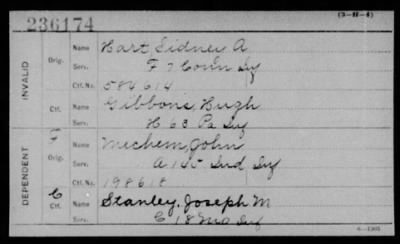 236174
(3-H-4)
INVALID
Orig. Name Hart Sidney A
Serv. F 7 Conn Inf
Ctf. No. 584614
Ctf. Name Gibbons, Hugh
Serv. H 63 Pa Inf
DEPENDENT
Orig. Name Mechem, John
Serv. A 145 Ind Inf
Ctf. No. 198618
C
Ctf. Name Stanley, Joseph M
Serv. C 18 Mo Inf
6-1305